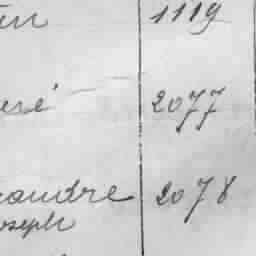 1119
eré 2077
candre 2078
oseph